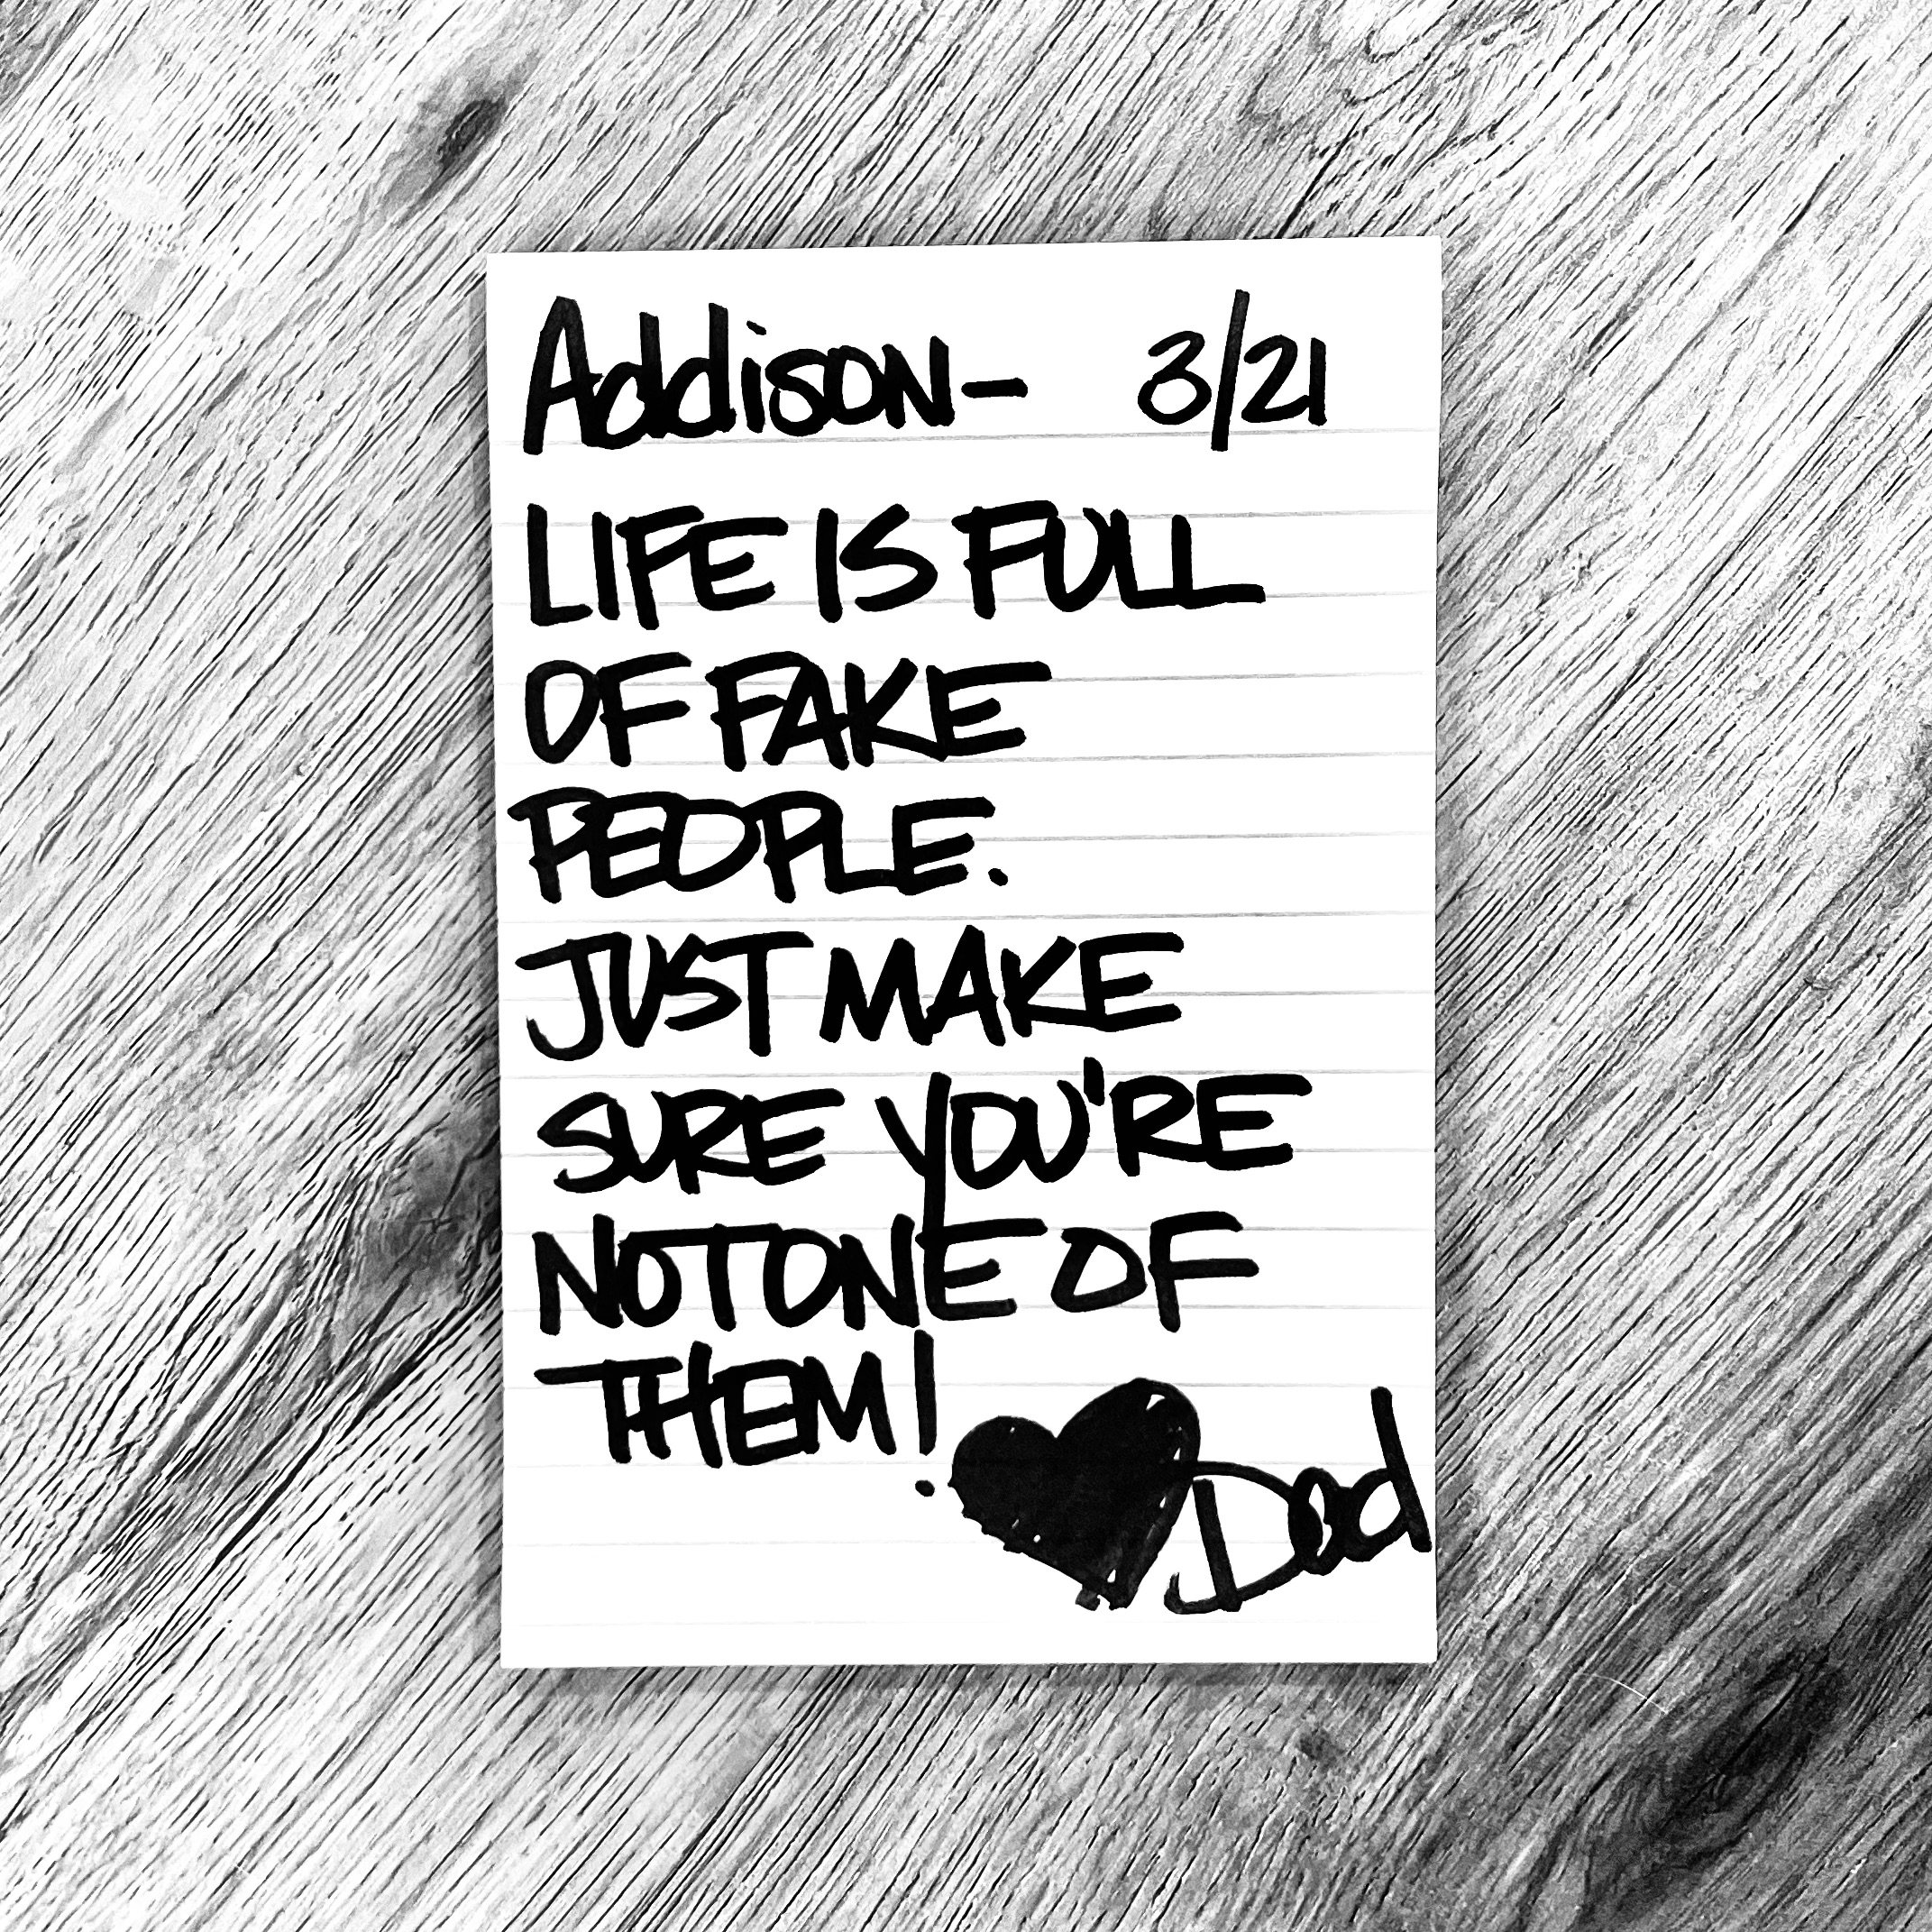 Addison- 3/21
LIFE IS FULL
OF FAKE
PEOPLE.
JUST MAKE
SURE YOU'RE
NOT ONE OF
THEM!
Dad